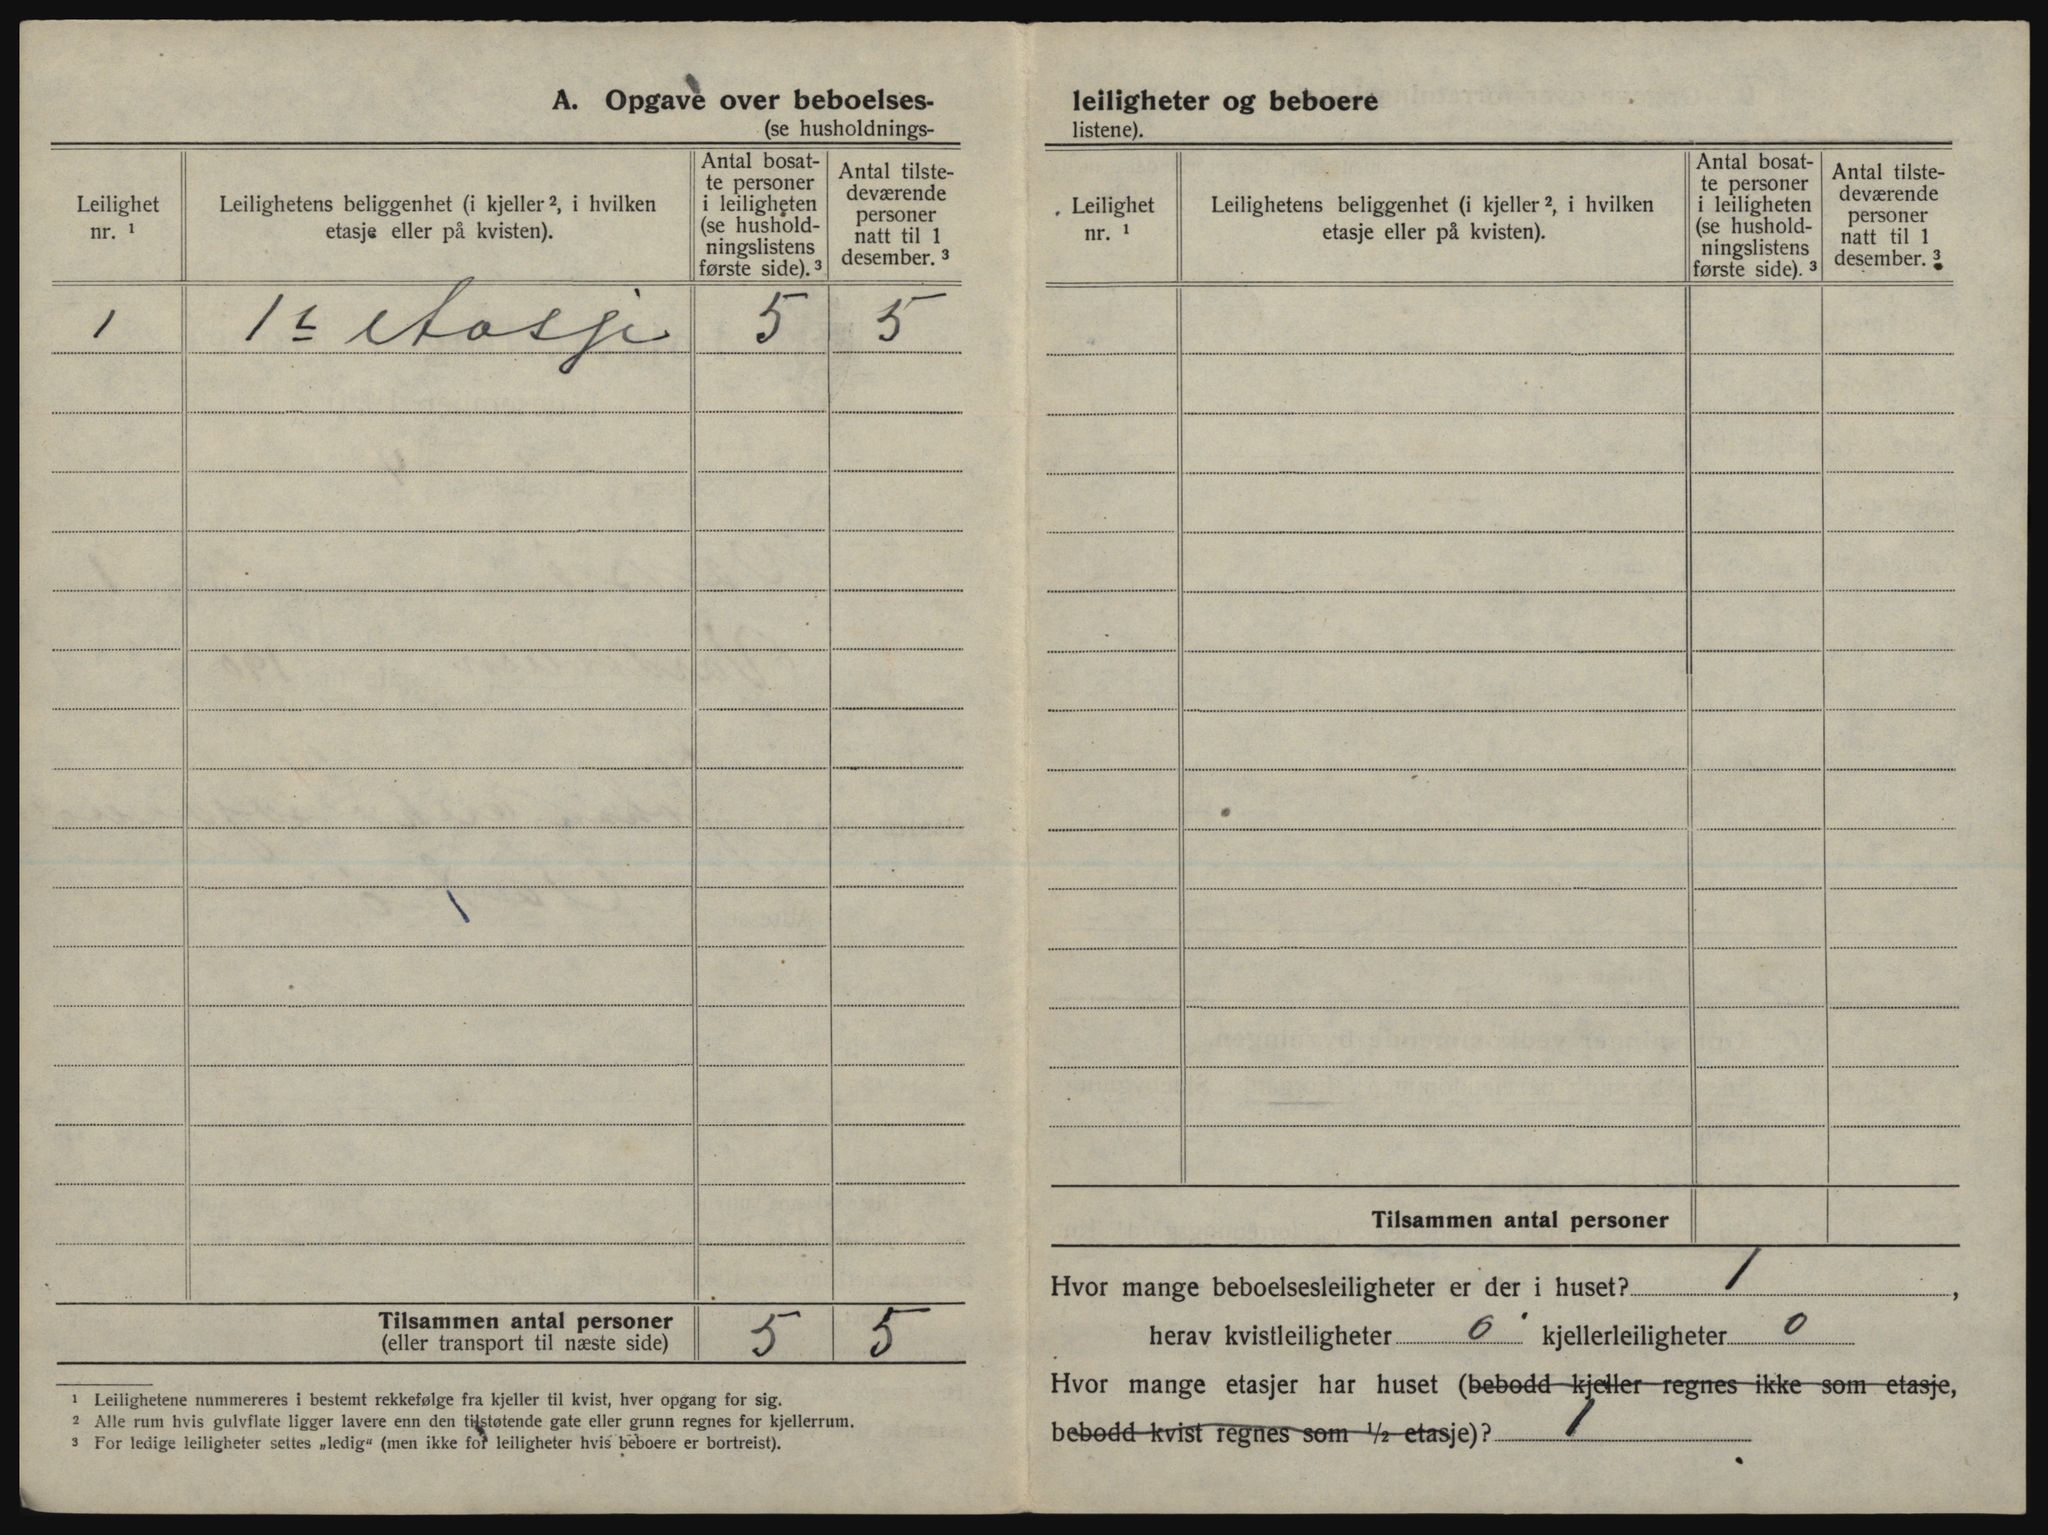 A. Opgave over beboelses-
(se husholdnings-
Leilighet
nr. ¹
Leilighetens beliggenhet (i kjeller ², i hvilken
etasje eller på kvisten).
Antal bosat-
te personer
i leiligheten
(se hushold-
ningslistens
første side). ³
Antal tilste-
deværende
personer
natt til 1
desember. ³
1 1ˢᵗ etasje 5 5
Tilsammen antal personer 5 5
(eller transport til næste side)
¹ Leilighetene nummereres i bestemt rekkefølge fra kjeller til kvist, hver opgang for sig.
² Alle rum hvis gulvflate ligger lavere enn den tilstøtende gate eller grunn regnes for kjellerrum.
³ For ledige leiligheter settes „ledig“ (men ikke for leiligheter hvis beboere er bortreist).
leiligheter og beboere
listene).
Leilighet
nr. ¹
Leilighetens beliggenhet (i kjeller ², i hvilken
etasje eller på kvisten).
Antal bosat-
te personer
i leiligheten
(se hushold-
ningslistens
første side). ³
Antal tilste-
deværende
personer
natt til 1
desember. ³
Tilsammen antal personer
Hvor mange beboelsesleiligheter er der i huset? 1,
herav kvistleiligheter 0 kjellerleiligheter 0
Hvor mange etasjer har huset (bebodd kjeller regnes ikke som etasje,
bebodd kvist regnes som ½ etasje)? 1